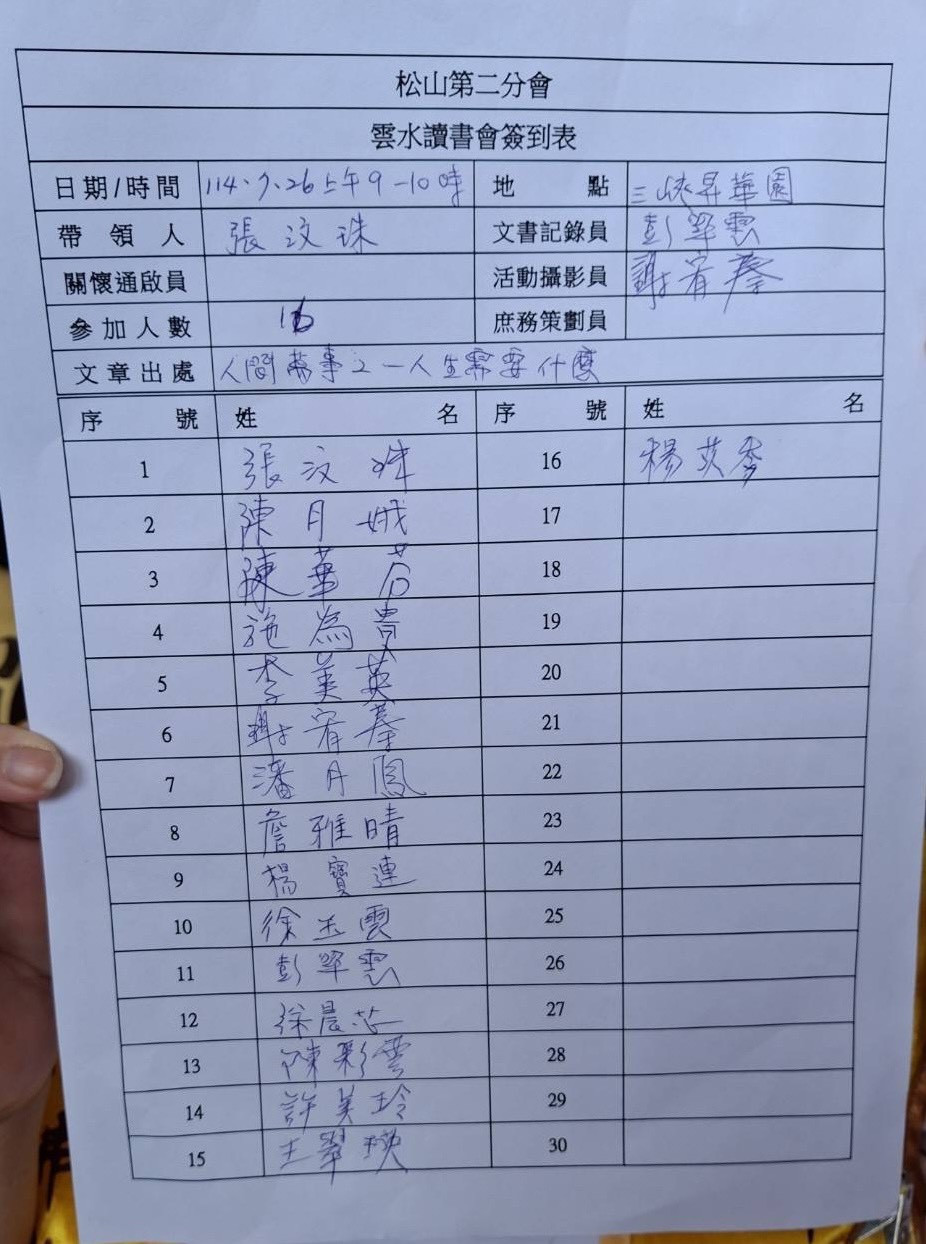 松山第二分會
雲水讀書會簽到表
日期/時間 114.7.26上午9-10時 地點 三峽昇華園
帶領人 張汶珠 文書記錄員 彭翠雲
關懷通啟員 活動攝影員 謝宥蓁
參加人數 16 庶務策劃員
文章出處 人間萬事之一人生需要什麼
序號 姓名 序號 姓名
1 張汶珠 16 楊英
2 陳月娥 17
3 陳華芳 18
4 施為貴 19
5 李美英 20
6 謝宥蓁 21
7 潘月鳳 22
8 詹雅晴 23
9 楊寶連 24
10 徐玉雲 25
11 彭翠雲 26
12 徐晨芯 27
13 陳彩雲 28
14 許美玲 29
15 王翠瑛 30